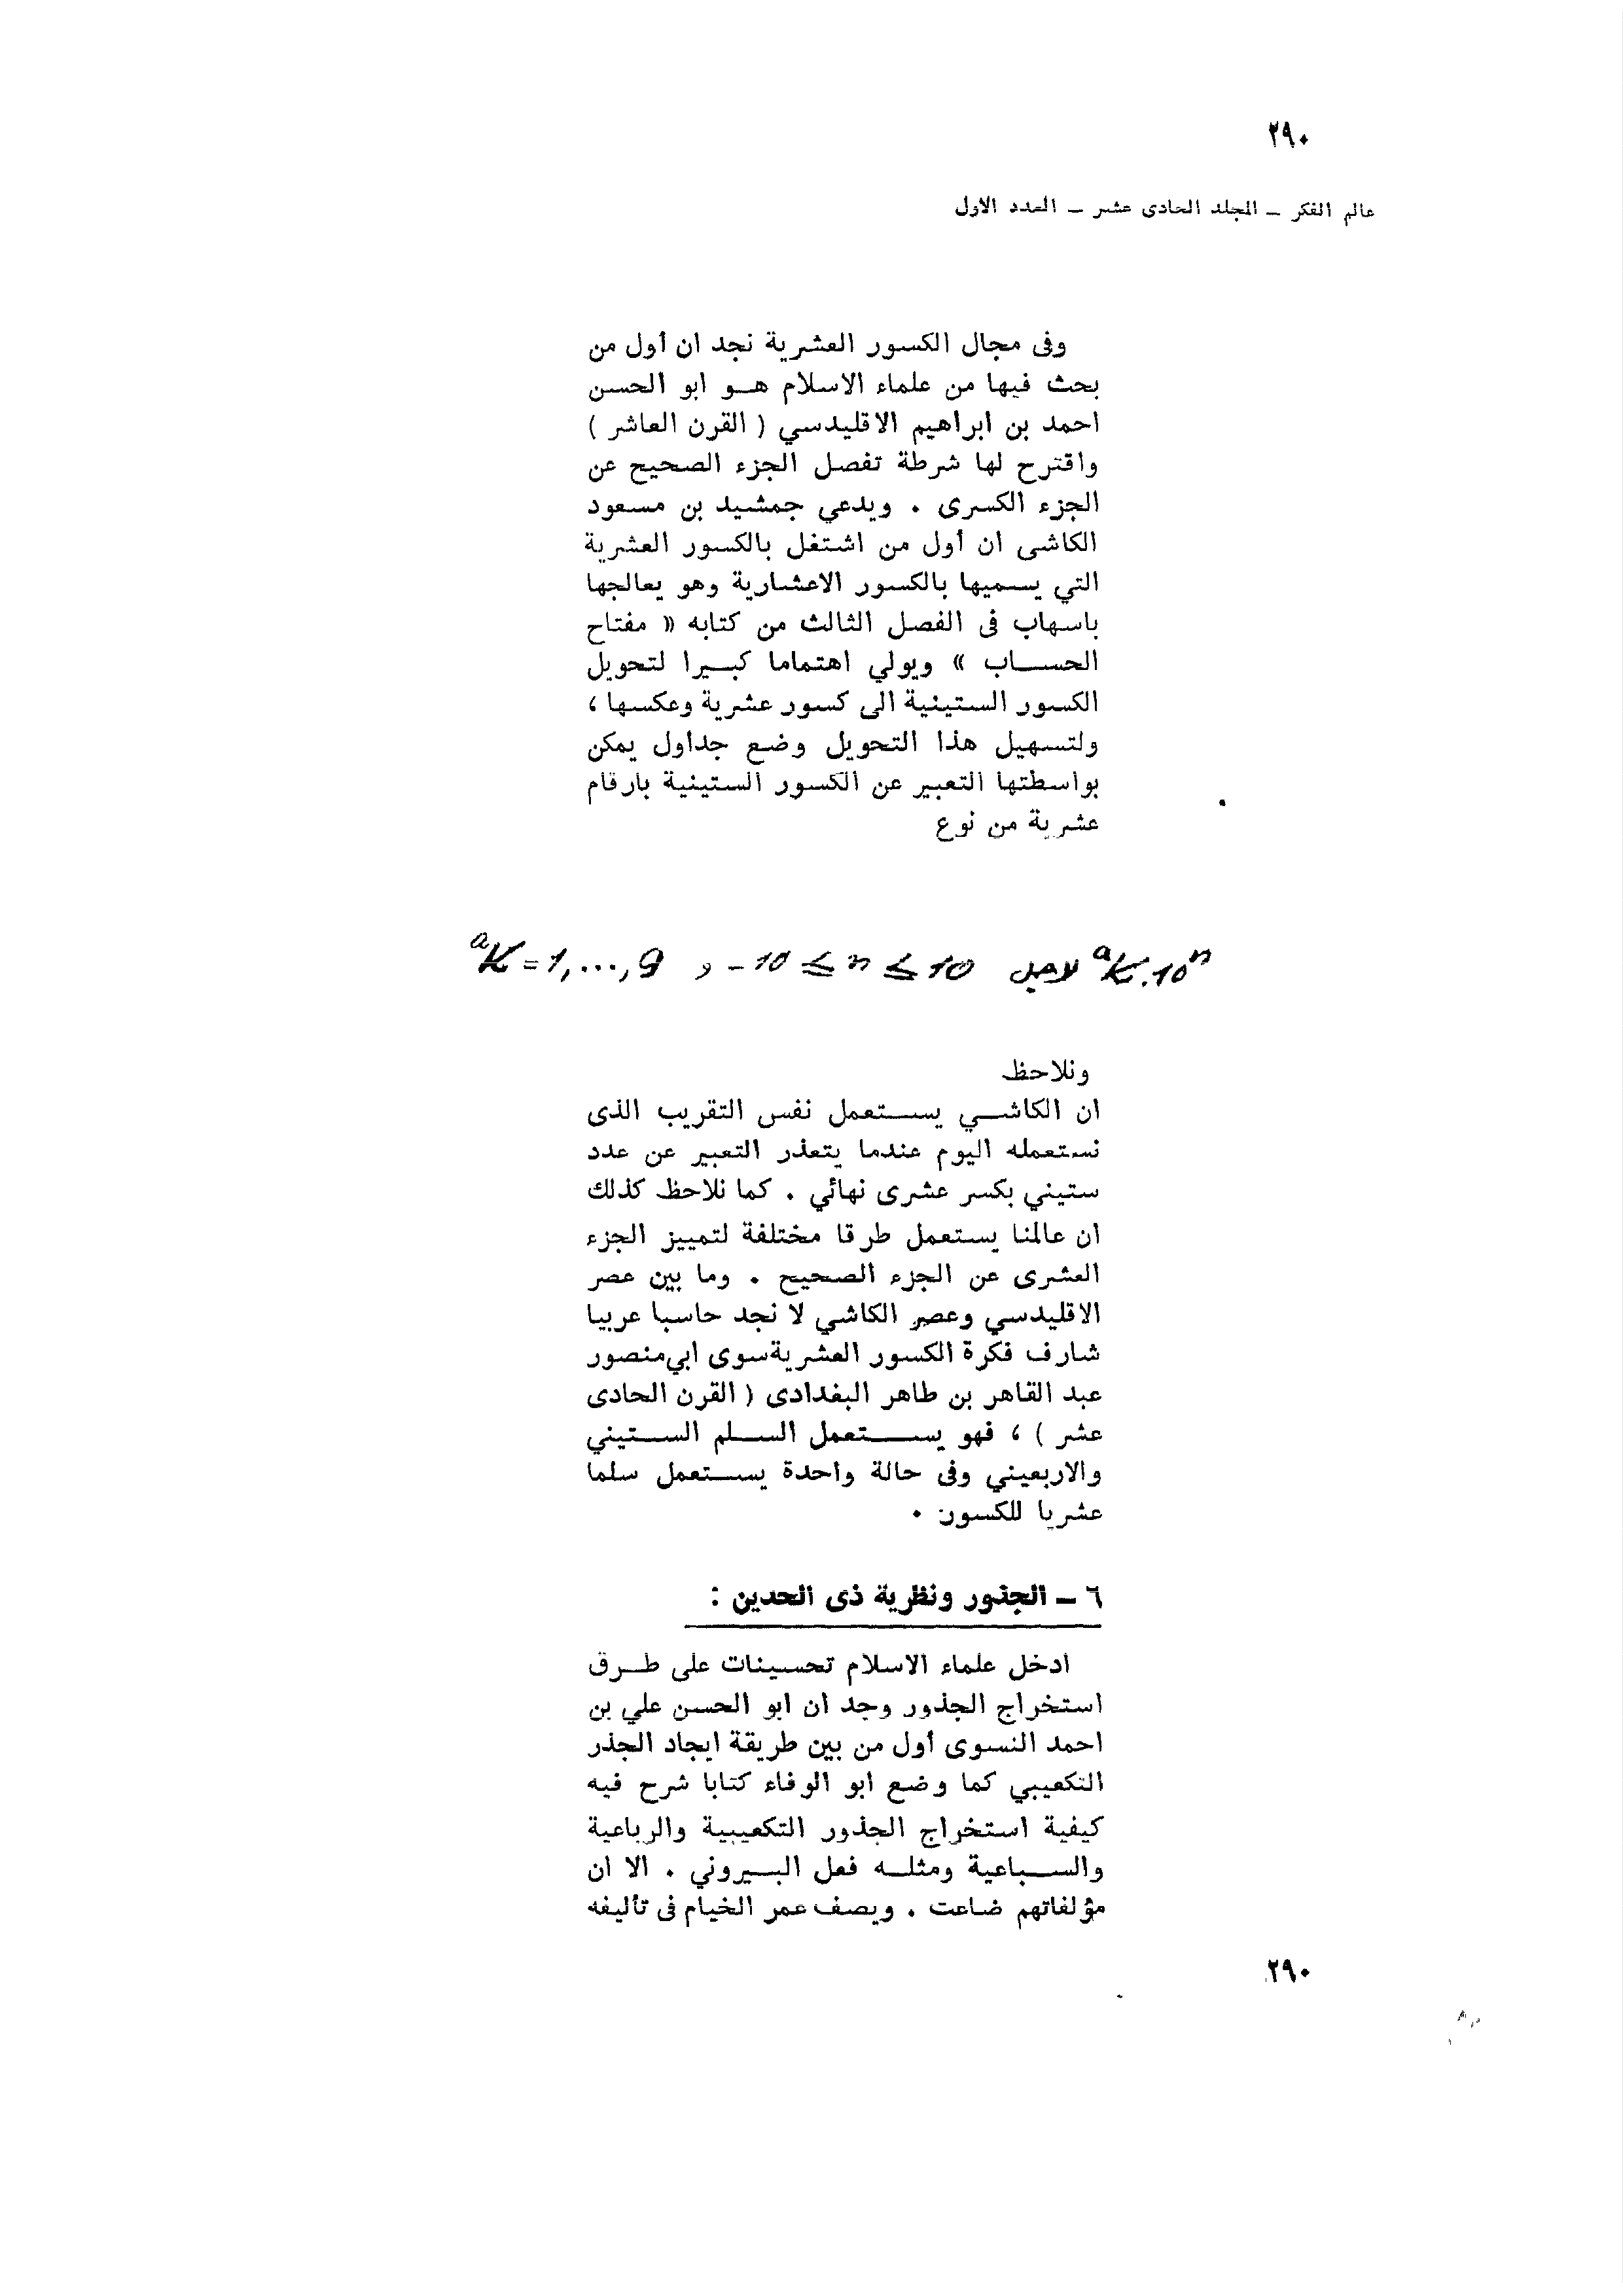 ٢٩٠
عالم الفكر ـ المجلد الحادى عشر ـ العدد الاول
وفى مجال الكسور العشرية نجد ان أول من
بحث فيها من علماء الاسلام هـو ابو الحسن
احمد بن ابراهيم الاقليدسي ( القرن العاشر )
واقترح لها شرطة تفصل الجزء الصحيح عن
الجزء الكسرى . ويدعي جمشيد بن مسعود
الكاشى ان أول من اشتغل بالكسور العشرية
التي يسميها بالكسور الاعشارية وهو يعالجها
باسهاب فى الفصل الثالث من كتابه « مفتاح
الحساب » ويولي اهتماما كبيرا لتحويل
الكسور الستينية الى كسور عشرية وعكسها ،
ولتسهيل هذا التحويل وضع جداول يمكن
بواسطتها التعبير عن الكسور الستينية بارقام
عشرية من نوع
aK.10ⁿ لاجل -10 ≤ n ≤ 10 و aK=1,...,9
ونلاحظ
ان الكاشي يستعمل نفس التقريب الذى
نستعمله اليوم عندما يتعذر التعبير عن عدد
ستيني بكسر عشرى نهائي . كما نلاحظ كذلك
ان عالمنا يستعمل طرقا مختلفة لتمييز الجزء
العشرى عن الجزء الصحيح . وما بين عصر
الاقليدسي وعصر الكاشي لا نجد حاسبا عربيا
شارف فكرة الكسور العشرية سوى ابي منصور
عبد القاهر بن طاهر البغدادى ( القرن الحادى
عشر ) ، فهو يستعمل السلم الستيني
والاربعيني وفى حالة واحدة يستعمل سلما
عشريا للكسون .
٦ ـ الجذور ونظرية ذى الحدين :
ادخل علماء الاسلام تحسينات على طرق
استخراج الجذور وجد ان ابو الحسن علي بن
احمد النسوى أول من بين طريقة ايجاد الجذر
التكعيبي كما وضع ابو الوفاء كتابا شرح فيه
كيفية استخراج الجذور التكعيبية والرباعية
والسباعية ومثله فعل البيروني . الا ان
مؤلفاتهم ضاعت . ويصف عمر الخيام فى تأليفه
٢٩٠